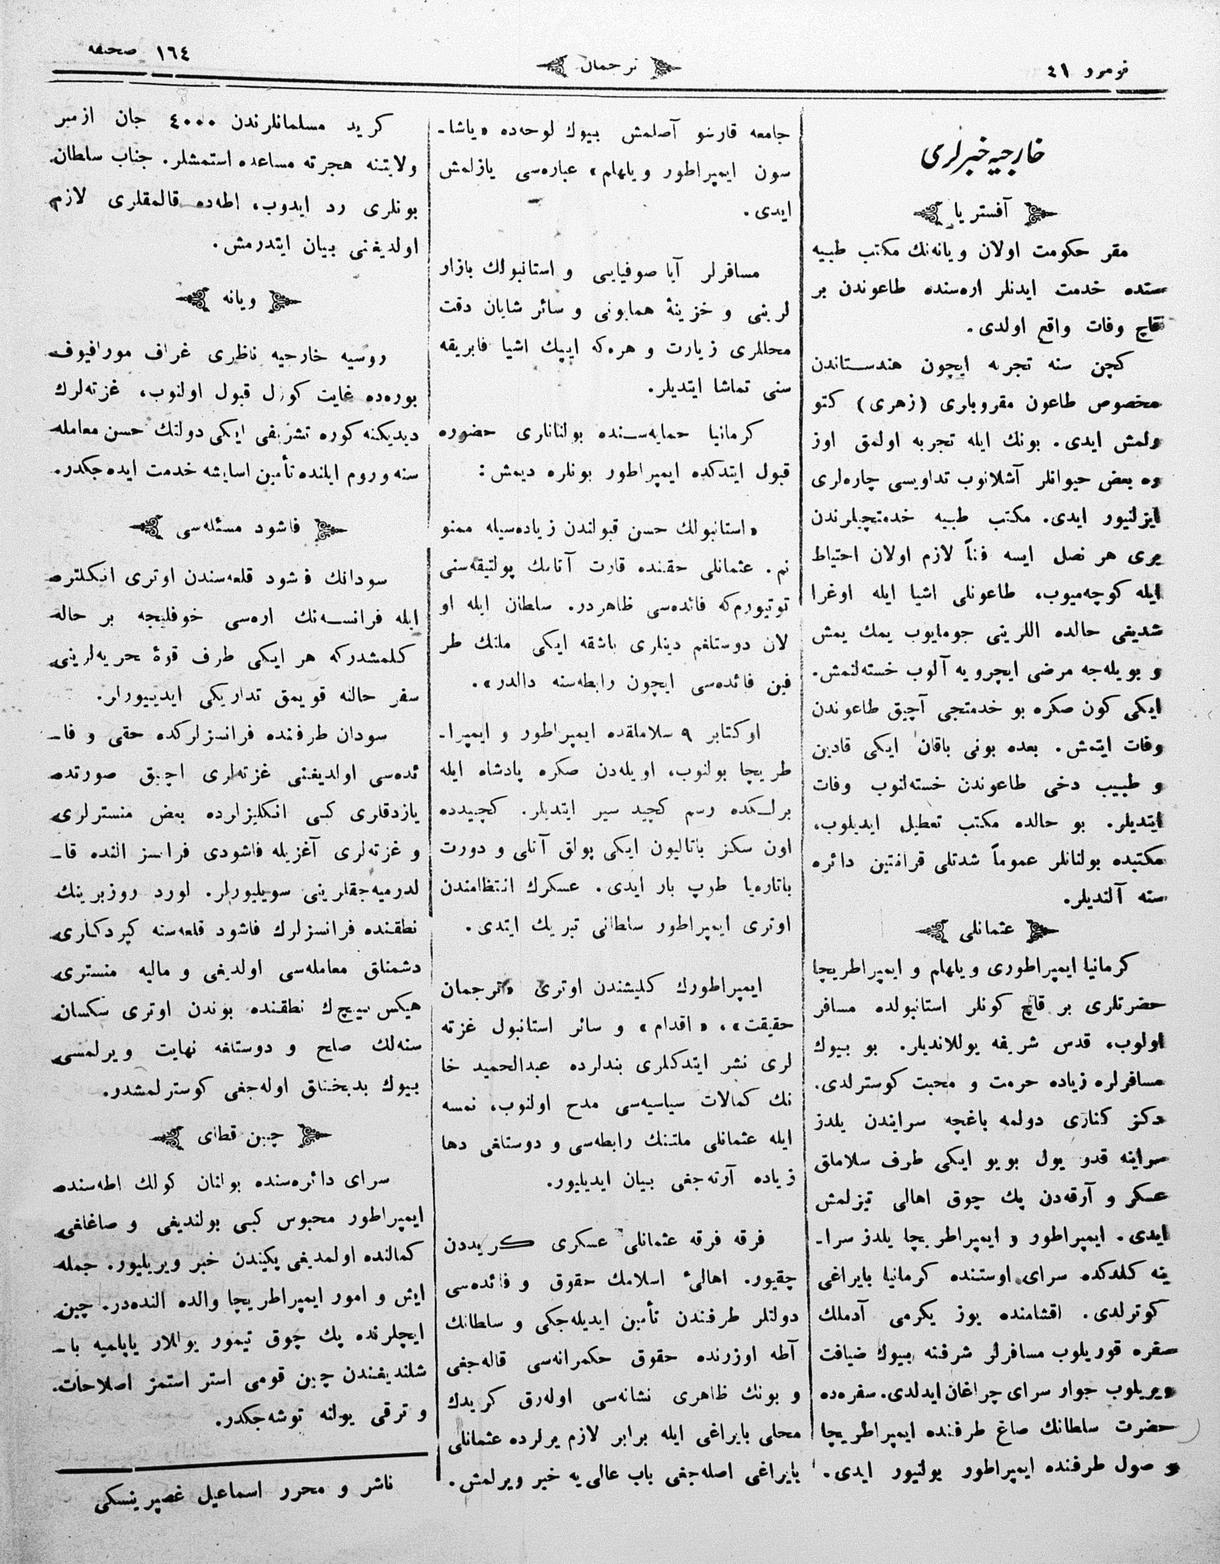 نومرو ٤١
ترجمان
١٦٤ صحيفه
خارجيه خبرلرى
آفستريا
مقر حكومت اولان ويانه‌نك مكتب طبيه
سنده خدمت ايدنلر اره‌سنده طاعوندن بر
قاچ وفات واقع اولدى.
كچن سنه تجربه ايچون هندستاندن
مخصوص طاعون مقروبارى (زهرى) كتو
رلمش ايدى. بونك ايله تجربه اولمق اوز
ره بعض حيوانلر آشلانوب تداويسى چاره‌لرى
ايزلنيور ايدى. مكتب طبيه خدمتچيلرندن
برى هر نصل ايسه فناً لازم اولان احتياط
ايله كوچه‌ميوب، طاعونلى اشيا ايله اوغرا
شديغى حالده اللرينى جومايوب يمك يمش
و بويله‌جه مرضى ايچرويه آلوب خسته‌لنمش.
ايكى كون صكره بو خدمتجى آچيق طاعوندن
وفات ايتمش. بعده بونى باقان ايكى قادين
و طبيب دخى طاعوندن خسته‌لنوب وفات
ايتديلر. بو حالده مكتب تعطيل ايديلوب،
مكتبده بولنانلر عموماً شدتلى قرانتين دائره
سنه آلنديلر.
عثمانلى
كرمانيا ايمپراطورى ويلهام و ايمپراطريچا
حضرتلرى بر قاچ كونلر استانبولده مسافر
اولوب، قدس شريفه يوللانديلر. بو بيوك
مسافرلره زياده حرمت و محبت كوسترلدى.
دكز كنارى دولمه باغچه سرايندن يلدز
سراينه قدر يول بويو ايكى طرف سلاملق
عسكر و آرقه‌دن پك چوق اهالى تيزلمش
ايدى. ايمپراطور و ايمپراطريچا يلدز سرا-
ينه كلدكده سراى اوستنده كرمانيا بايراغى
كوترلدى. اقشامنده يوز يكرمى آدملك
سفره قوريلوب مسافرلر شرفنه بيوك ضيافت
ويريلوب جوار سراى چراغان ايدلدى. سفره‌ده
حضرت سلطانك صاغ طرفنده ايمپراطريچا
و صول طرفنده ايمپراطور يولنيور ايدى.
جامعه قارشو آصلمش بيوك لوحه‌ده «ياشا-
سون ايمپراطور ويلهام» عباره‌سى يازلمش
ايدى.
مسافرلر آيا صوفيايى و استانبولك بازار
لرينى و خزينۀ همايونى و سائر شايان دقت
محللرى زيارت و هره‌كه ايپك اشيا فابريقه
سنى تماشا ايتديلر.
كرمانيا حمايه‌سنده بولنانارى حضوره
قبول ايتدكده ايمپراطور بونلره ديمش:
«استانبولك حسن قبولندن زياده‌سيله ممنو
نم. عثمانلى حقنده قارت آتامك پولتيقه‌سنى
توتيورم‌كه فائده‌سى ظاهردر. سلطان ايله او
لان دوستلغم دينلرى باشقه ايكى ملتك طر
فين فائده‌سى ايچون رابطه‌سنه دالدر».
اوكتابر ٩ سلاملقده ايمپراطور و ايمپرا-
طريچا بولنوب، اويله‌دن صكره پادشاه ايله
برلكده رسم كچيد سير ايتديلر. كچيدده
اون سكز باتاليون ايكى پولق آتلى و دورت
باتاره‌يا طوپ بار ايدى. عسكرك انتظامندن
اوترى ايمپراطور سلطانى تبريك ايتدى.
ايمپراطورك كليشندن اوترى «ترجمان
حقيقت»، «اقدام» و سائر استانبول غزته
لرى نشر ايتدكلرى بندلرده عبدالحميد خا
نك كمالات سياسيه‌سى مدح اولنوب، نمسه
ايله عثمانلى ملتنك رابطه‌سى و دوستلغى دها
زياده آرته‌جغى بيان ايديليور.
فرقه فرقه عثمانلى عسكرى كريددن
چقيور. اهالئ اسلامك حقوق و فائده‌سى
دولتلر طرفندن تأمين ايديله‌جكى و سلطانك
آطه اوزرنده حقوق حكمرانه‌سى قاله‌جغى
و بونك ظاهرى نشانه‌سى اوله‌رق كريدك
محلى بايراغى ايله برابر لازم يرلرده عثمانلى
بايراغى اصله‌جغى باب عالى‌يه خبر ويرلمش.
كريد مسلمانلرندن ٤٠٠٠ جان ازمير
ولايتنه هجرته مساعده استمشلر. جناب سلطان
بونلرى رد ايدوب، اطه‌ده قالمقلرى لازم
اولديغنى بيان ايتدرمش.
ويانه
روسيه خارجيه ناظرى غراف مورافيوف
بوره‌ده غايت كوزل قبول اولنوب، غزته‌لرك
ديديكنه كوره تشريفى ايكى دولتك حسن معامله
سنه و روم ايلنده تأمين اسايشه خدمت ايده‌جكدر.
فاشود مسئله‌سى
سودانك فشود قلعه‌سندن اوترى انكلتره
ايله فرانسه‌نك اره‌سى خوفليجه بر حاله
كلمشدركه هر ايكى طرف قوۀ بحريه‌لرينى
سفر حالنه قويمق تداريكى ايدييورلر.
سودان طرفنده فرانسزلركده حقى و فا-
ئده‌سى اولديغنى غزته‌لرى اچيق صورتده
يازدقلرى كبى انكليزلرده بعض منسترلرى
و غزته‌لرى آغزيله فاشودى فرانسز النده قا-
لدرميه‌جقلرينى سويليورلر. لورد روزبرينك
نطقنده فرانسزلرك فاشود قلعه‌سنه كيردكلرى
دشمنلق معامله‌سى اولديغى و ماليه منسترى
هيكس بيچ‌ك نطقنده بوندن اوترى سكسان
سنه‌لك صلح و دوستلغه نهايت ويرلمسى
بيوك بدبختلق اوله‌جغى كوسترلمشدر.
چين قطاى
سراى دائره‌سنده بولنان كولك اطه‌سنده
ايمپراطور محبوس كبى بولنديغى و صاغلغى
كمالنده اولمديغى پكيندن خبر ويريليور. جمله
ايش و امور ايمپراطريچا والده النده‌در. چين
ايچلرنده پك چوق تيمور يوللار ياپلميه با-
شلنديغندن چين قومى استر استمز اصلاحات
و ترقى يولنه توشه‌جكدر.
ناشر و محرر اسماعيل غصپرينسكى